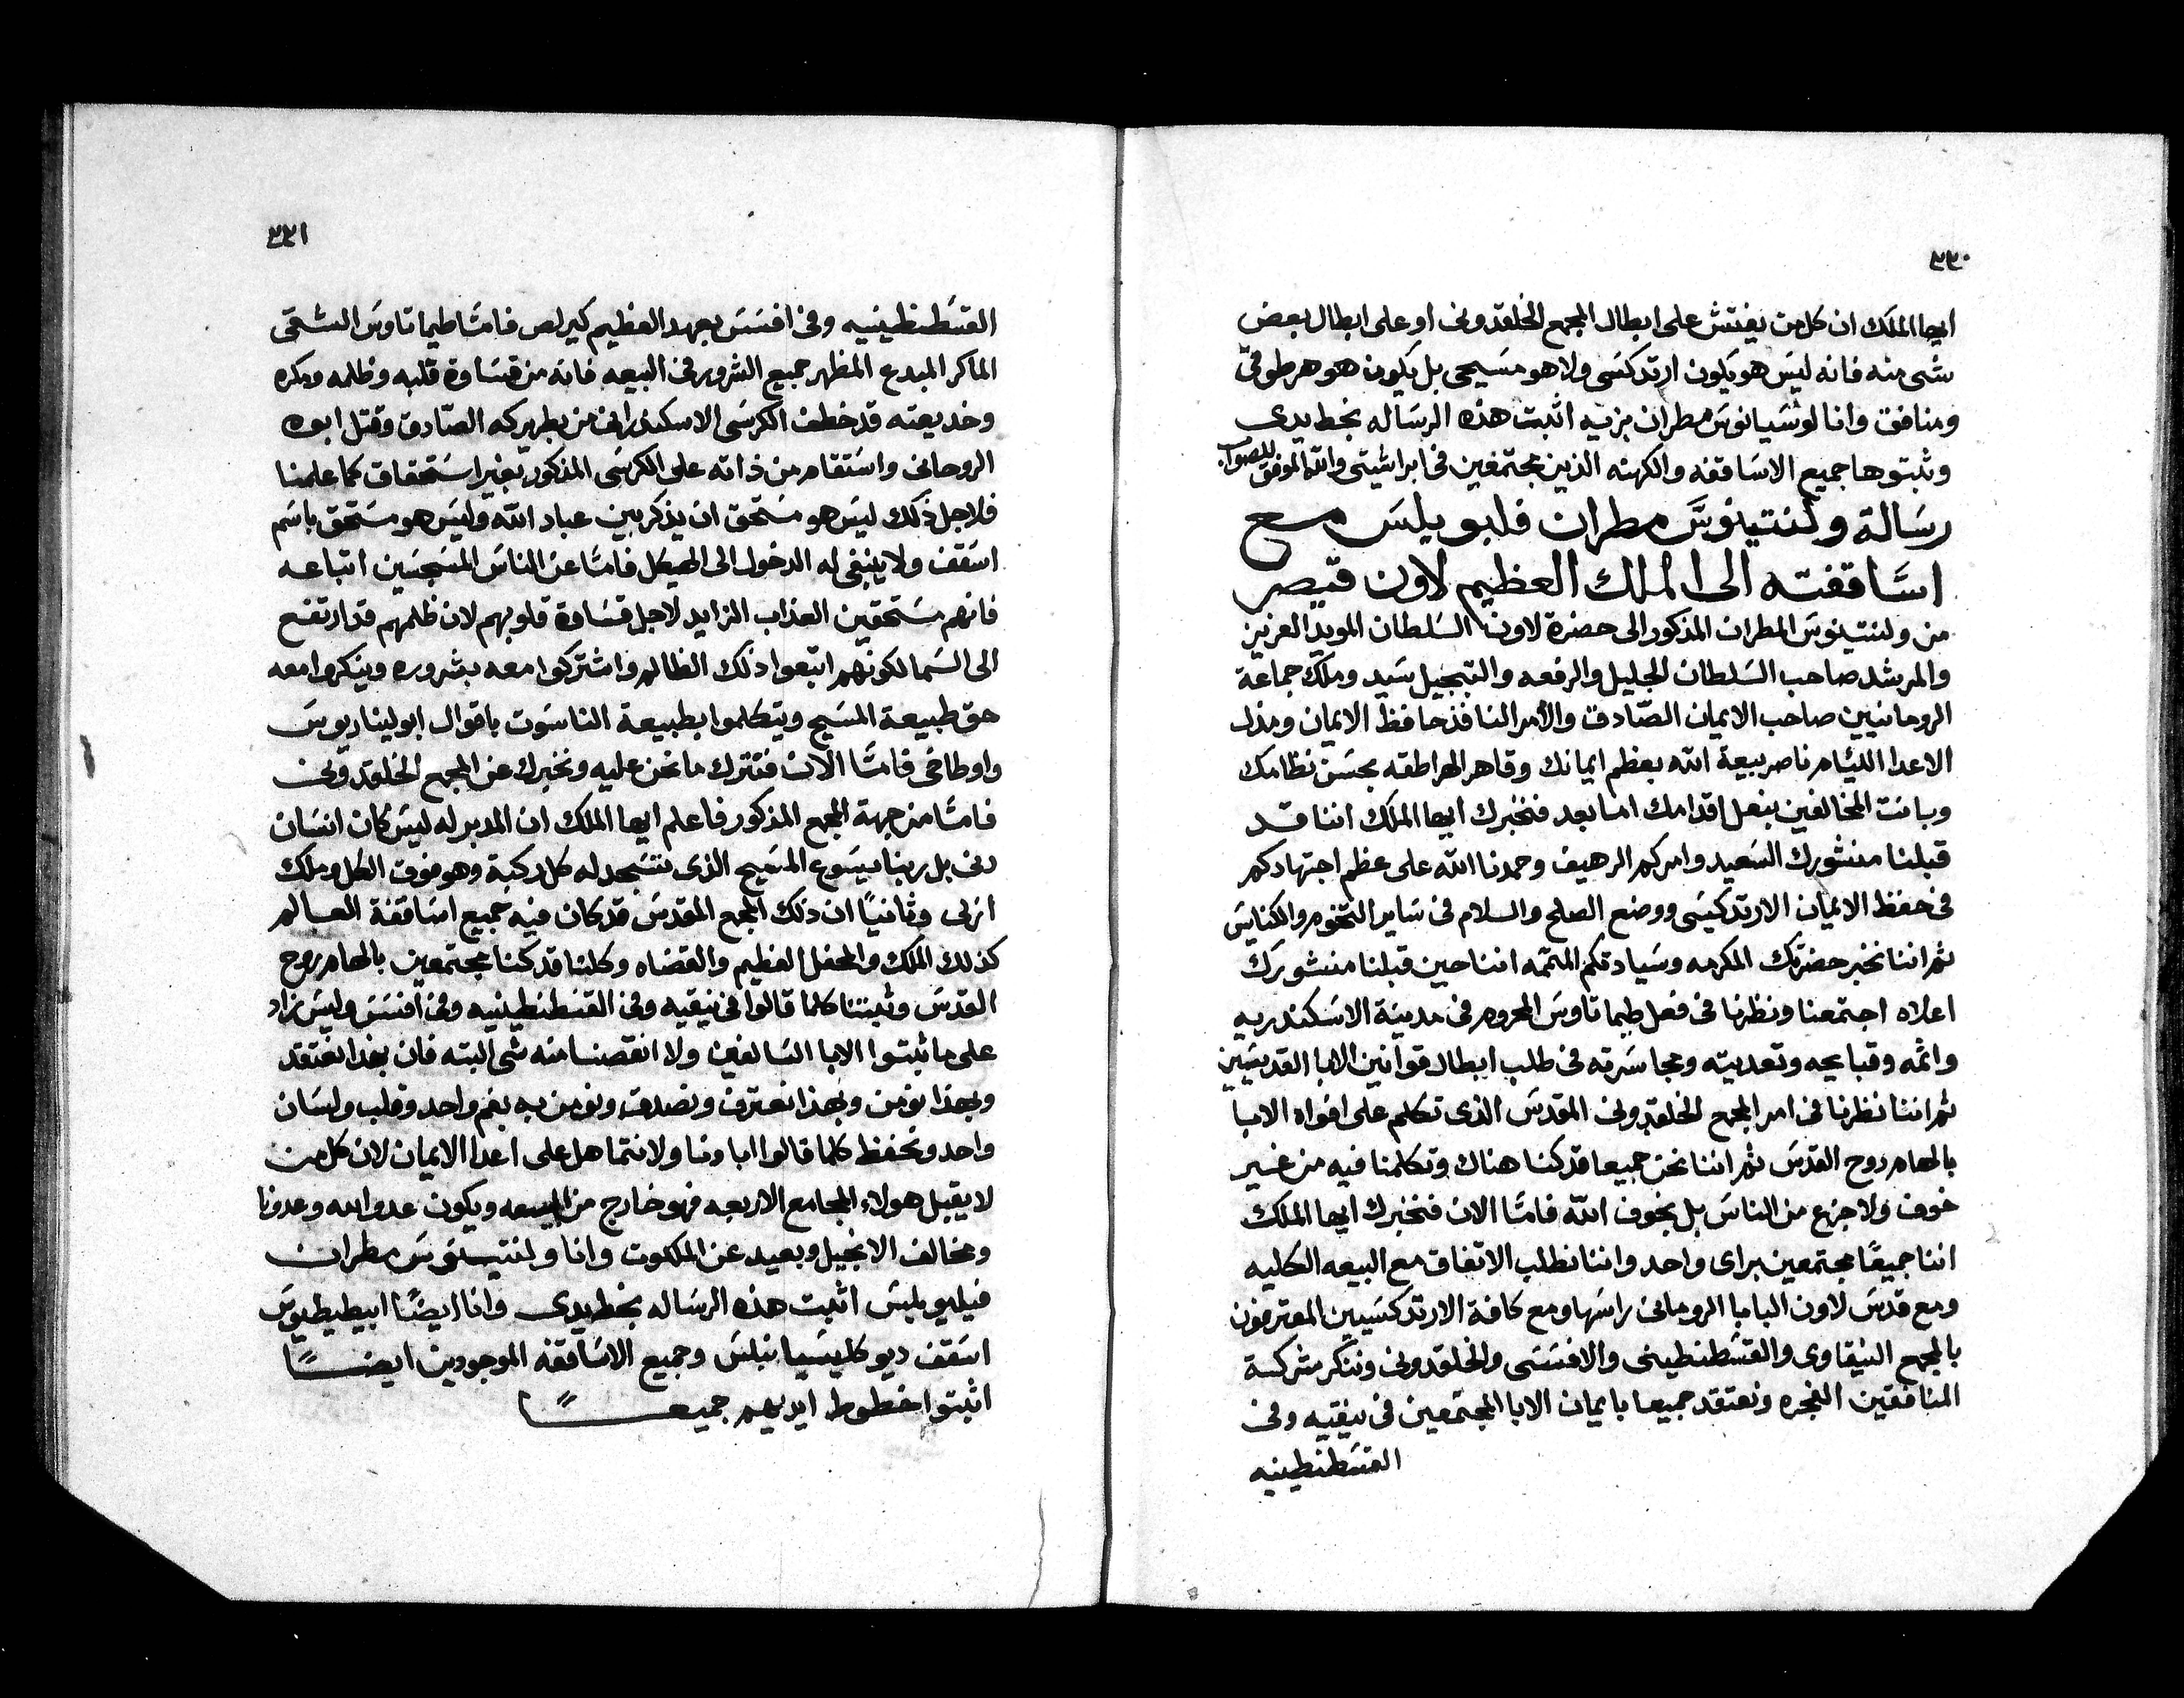 ٣٣٠
ايها الملك ان كل من يفتش على ابطال المجمع الخلقدونى او على ابطال بعض
شى منه فانه ليس هو يكون ارتدكسى ولا هو مسيحى بل يكون هو هرطوقى
ومنافق وانا لوشيانوس مطران بزيه اثبت هذه الرساله بخط يدى
وثبتوها جميع الاساقفه والكهنه الذين مجتمعين فى ابراشيتى والله الموفق للصواب
رسالة ولنتينوس مطران فلبوبليس مع
اساقفته الى الملك العظيم لاون قيصر
من ولنتينوس المطران المذكور الى حضرة لاون السلطان المويد العزيز
والمرشد صاحب السلطان الجليل والرفعه والتبجيل سيد وملك جماعة
الرومانيين صاحب الايمان الصادق والأمر النافذ حافظ الايمان ومذل
الاعدا الليام ناصر بيعة الله بعظم ايمانك وقاهر الهراطقه بحسن نظامك
وبانت المخالفين بنعل اقدامك اما بعد فنخبرك ايها الملك اننا قد
قبلنا منشورك السعيد وامركم الرهيف وحمدنا الله على عظم اجتهادكم
فى حفظ الايمان الارتدكسى ووضع الصلح والسلام فى ساير التخوم والكنايس
ثم اننا نخبر حضرتك المكرمه وسيادتكم المتممه اننا حين قبلنا منشورك
اعلاه اجتمعنا ونظرنا فى فعل طيماتاوس المحروم فى مدينة الاسكندريه
واثمه وقبايحه وتعديته ومجاسرته فى طلب ابطال قوانين الابا القديسين
ثم اننا نظرنا فى امر المجمع الخلقدونى المقدس الذى تكلم على افواه الابا
بالهام روح القدس ثم اننا نحن جميعا قد كنا هناك وتكلمنا فيه من غير
خوف ولا جزع من الناس بل بخوف الله فامّا الان فنخبرك ايها الملك
اننا جميعًا مجتمعين براى واحد واننا نطلب الاتفاق مع البيعه الكليه
ومع قدس لاون البابا الرومانى راسها ومع كافة الارتدكسيين المعترفون
بالمجمع النيقاوى والقسطنطينى والافسسى والخلقدونى وننكر شركة
المنافقين الفجره ونعتقد جميعا بايمان الابا المجتمعين فى نيقيه وفى
القسطنطينيه
٣٣١
القسطنطينيه وفى افسس بعهد العظيم كيرلص فامّا طيماتاوس الشقى
الماكر المبدع المظهر جميع الشرور فى البيعه فانه من قساوة قلبه وظلمه ومكره
وخديعته قد خطف الكرسى الاسكندرانى من بطريركه الصادق وقتل ابوه
الروحانى واستقام من ذاته على الكرسى المذكور بغير استحقاق كما علمنا
فلاجل ذلك ليس هو مستحق ان يذكر بين عباد الله وليس هو مستحق باسم
اسقف ولا ينبغى له الدخول الى الهيكل فامّا عن الناس المسجسين اتباعه
فانهم مستحقين العذاب الزايد لاجل قساوة قلوبهم لان ظلمهم قد ارتفع
الى السما لكونهم اتبعوا ذلك الظالم واشتركوا معه بشروره وينكروا معه
حق طبيعة المسيح ويتكلموا بطبيعة الناسوت باقوال ابوليناريوس
واوطاخى فامّا الان فنترك ما نحن عليه ونخبرك عن المجمع الخلقدونى
فامّا من جهة المجمع المذكور فاعلم ايها الملك ان المدبر له ليس كان انسان
دنى بل ربنا يسوع المسيح الذى تسجد له كل ركبة وهو فوق الكل وملك
ازلى وثانيًا ان ذلك المجمع المقدس قد كان فيه جميع اساقفة العالم
كذلك الملك والمحفل العظيم والقضاه وكلنا قد كنا مجتمعين بالهام روح
القدس وثبتنا كلما قالوا فى نيقيه وفى القسطنطينيه وفى افسس وليس زاد
على ما ثبتوا الابا السالفين ولا انقصنا منه شى البته فان بهذا نعتقد
وبهذا نومن وبهذا نعترف ونصدق ونومن به بفم واحد وقلب ولسان
واحد ونحفظ كلما قالوا اباونا ولا نتماهل على اعدا الايمان لان كل من
لا يقبل هولاء المجامع الاربعه فهو خارج من البيعه ويكون عدو الله وعدونا
ومخالف الانجيل وبعيد عن الملكوت وانا ولنتينوس مطران
فيليوبليس اثبت هذه الرساله بخط يدى وانا ايضًا ابيطيطوس
اسقف ديوكليسيانبلس وجميع الاساقفه الموجودين ايضًا
اثبتوا خطوط ايديهم جميعًا